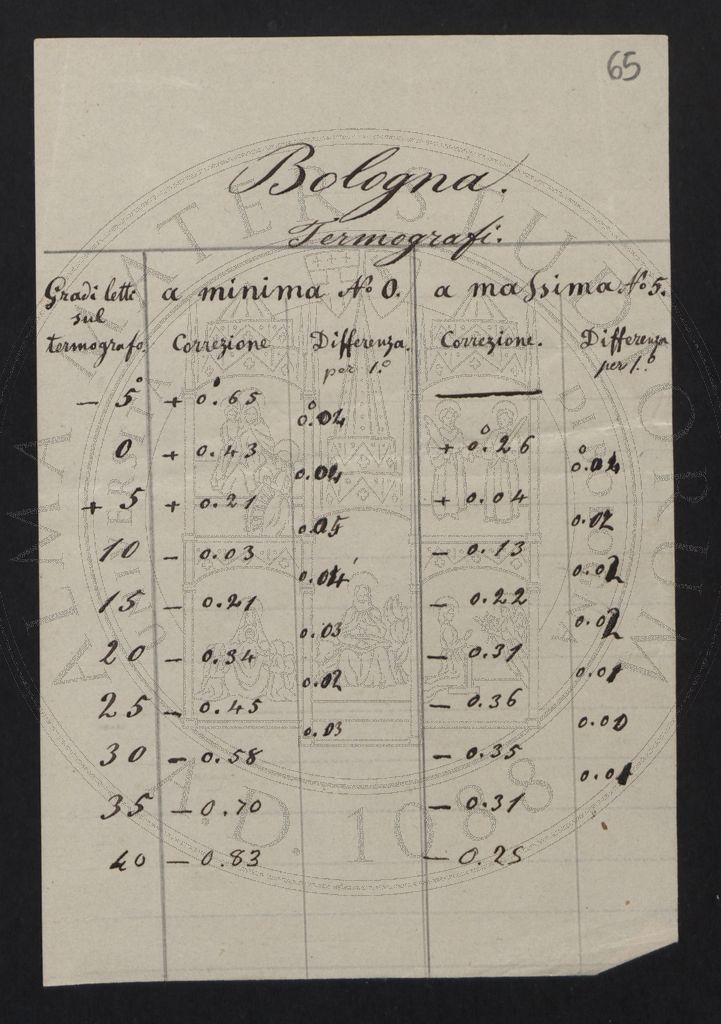 65
Bologna.
Termografi.
Gradi letti
sul
termografo.
a minima No 0.
a massima No 5.
Correzione
Differenza.
per 1.°
Correzione.
Differenza
per 1.°
− 5° + 0°.65 —
0°.04
0 + 0.43 + 0°.26
0.04 0°.04
+ 5 + 0.21 + 0.04
0.05 0.02
10 − 0.03 − 0.13
0.04 0.02
15 − 0.21 − 0.22
0.03 0.02
20 − 0.34 − 0.31
0.02 0.01
25 − 0.45 − 0.36
0.03 0.00
30 − 0.58 − 0.35
0.01
35 − 0.70 − 0.31
40 − 0.83 − 0.25
ALMA MATER STUDIORUM
A.D. 1088